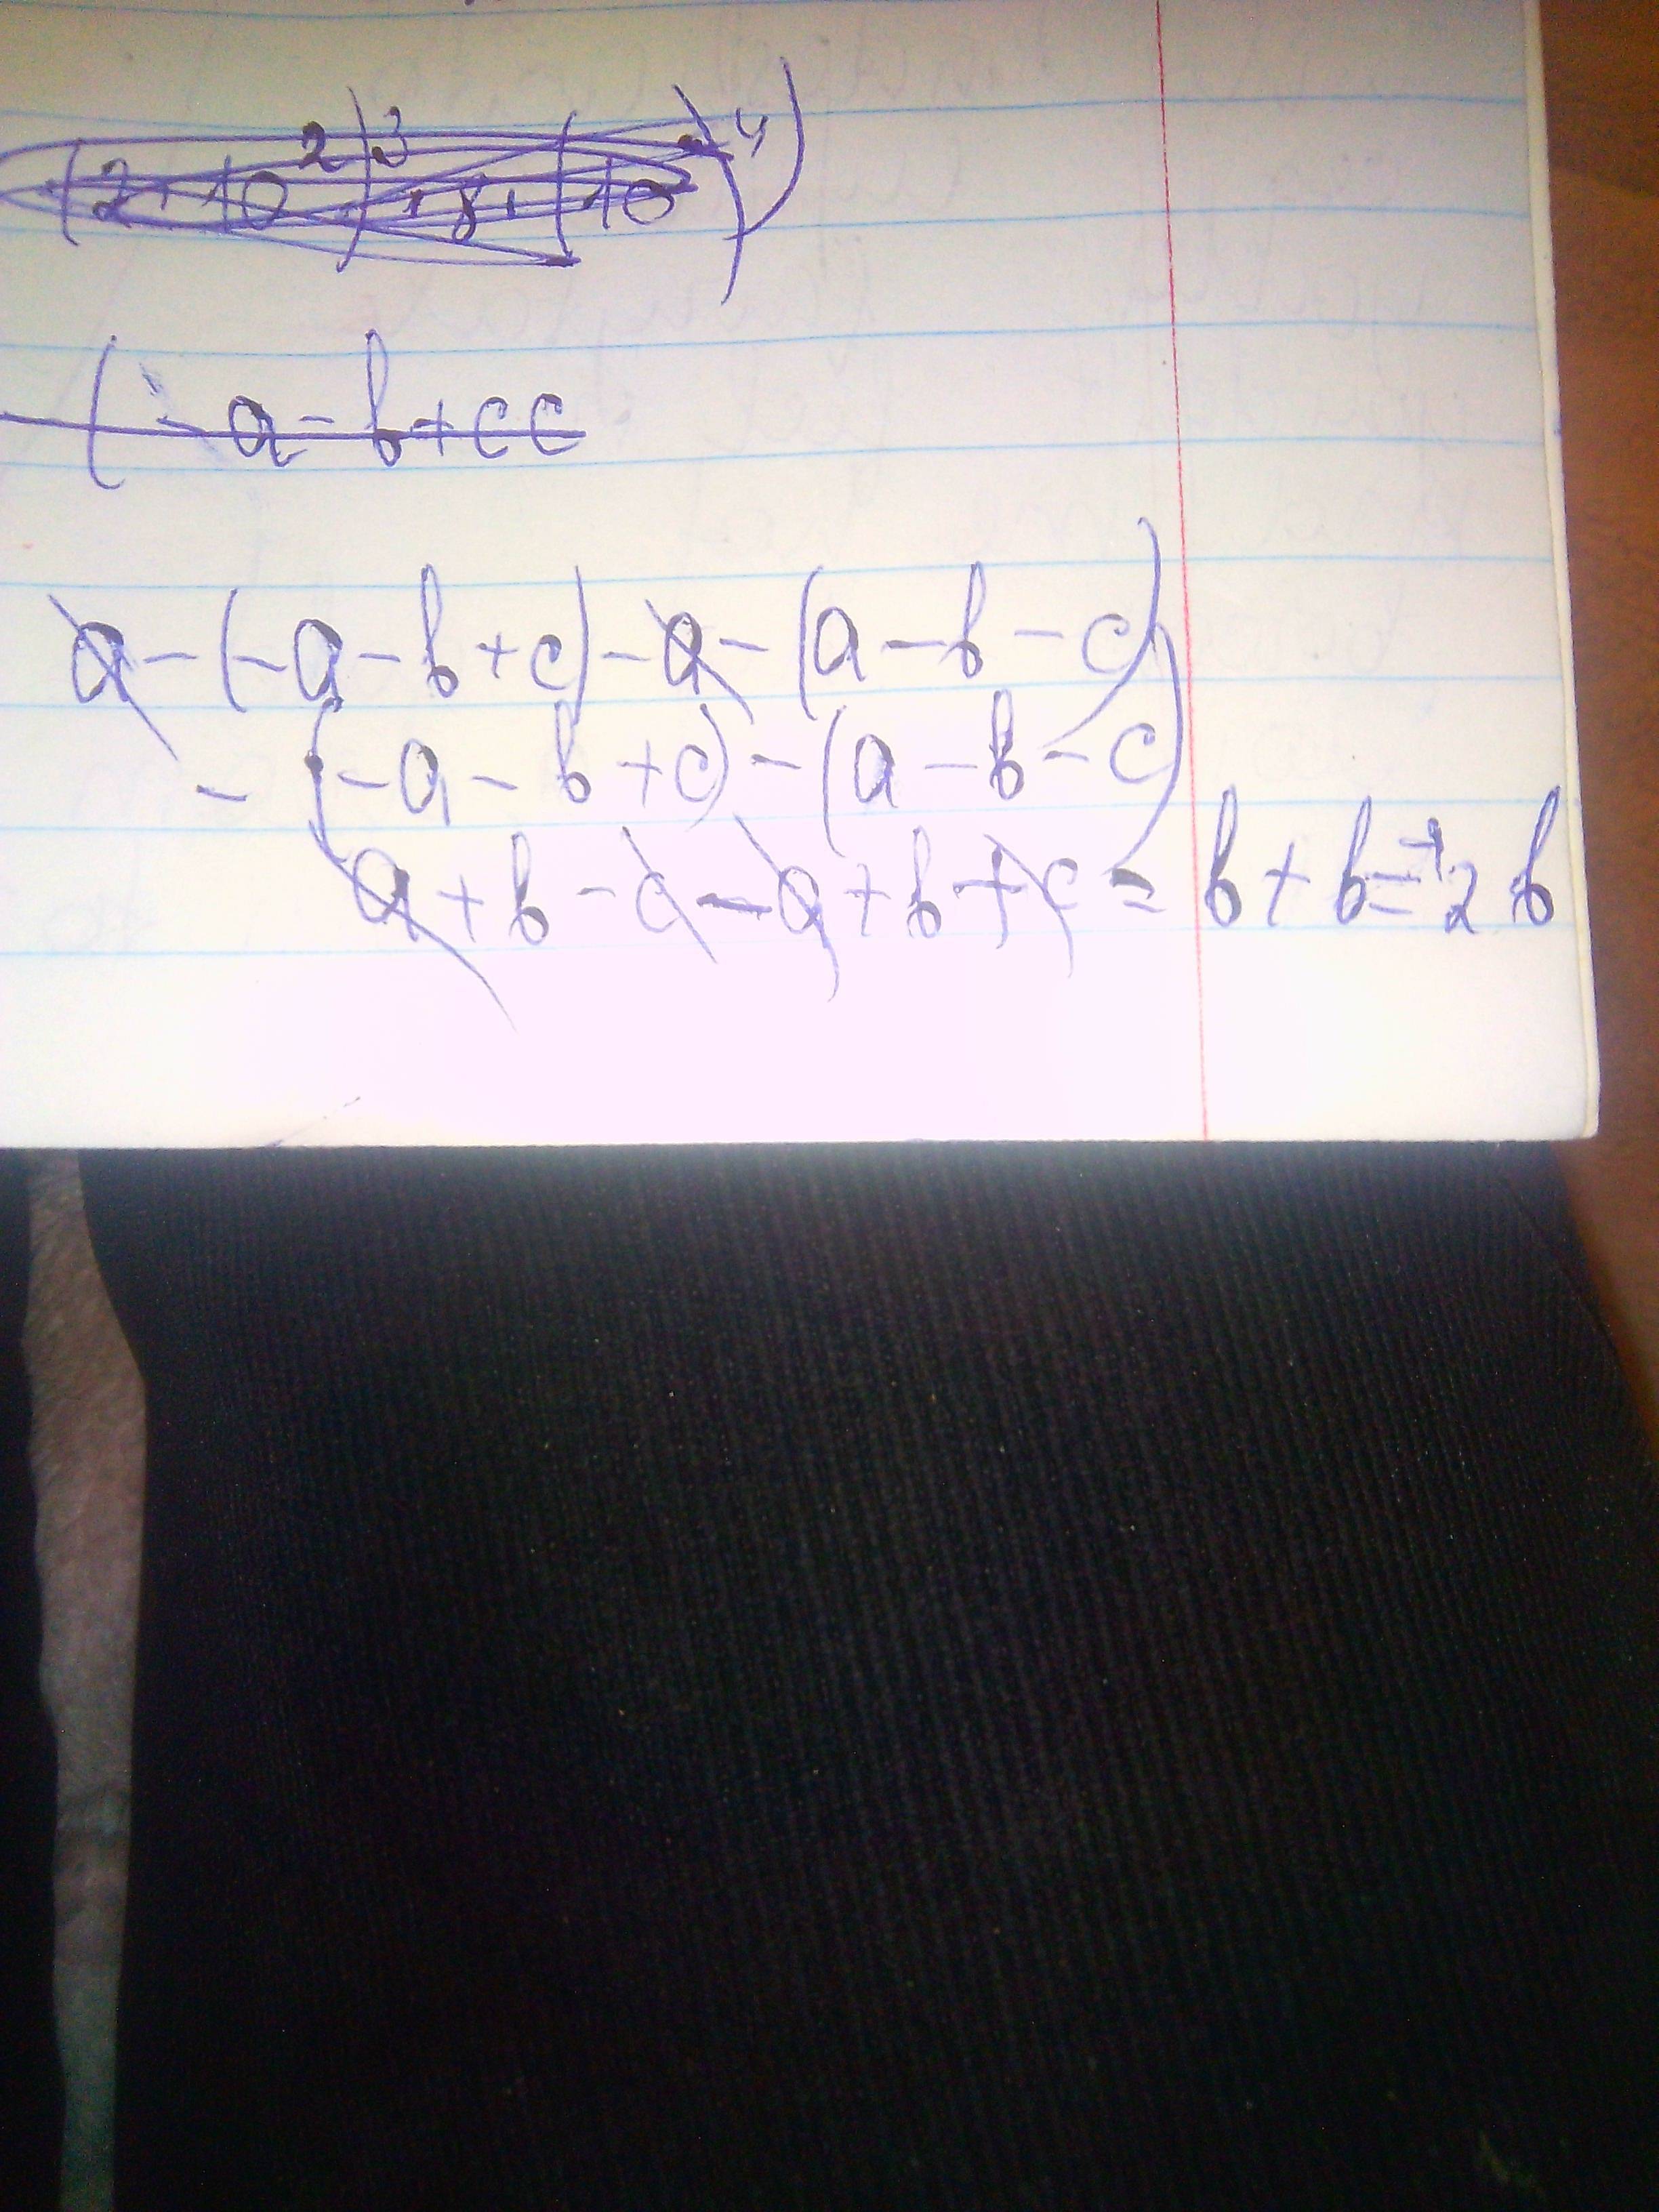 (2·10²)³ · 8 · (10²)⁴)
(-a-b+cc
a-(-a-b+c)-a-(a-b-c)
-(-a-b+c)-(a-b-c)
a+b-c-a+b+c=b+b=+2b